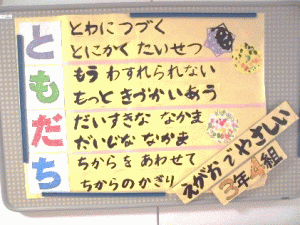 とわに つづく
とにかく たいせつ
もう わすれられない
もっと きづかいあう
だいすきな なかま
だいじな なかま
ちからを あわせて
ちからの かぎり
と
も
だ
ち
えがおで やさしい
3年4組